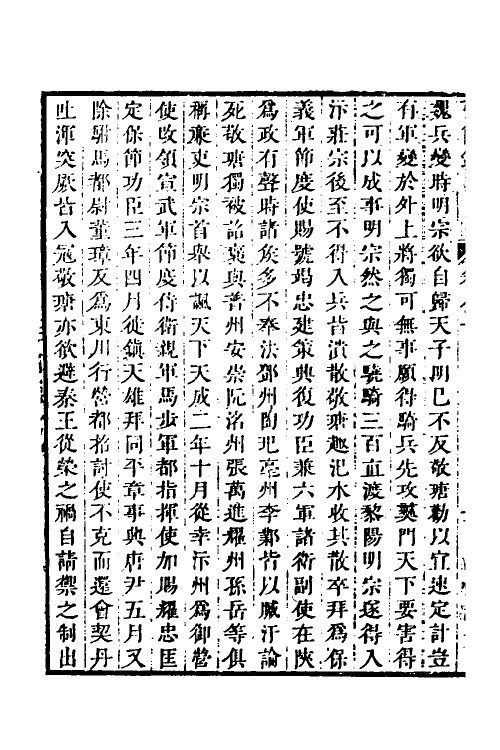 魏兵變時明宗欲自歸天子明己不反敬瑭勸以宜速定計豈
有軍變於外上將獨可無事願得騎兵先攻夷門天下要害得
之可以成事明宗然之與之驍騎三百直渡黎陽明宗遂得入
汴莊宗後至不得入兵皆潰散敬瑭趣汜水收其散卒拜爲保
義軍節度使賜號竭忠建策興復功臣兼六軍諸衛副使在陝
爲政有聲時諸侯多不奉法鄧州陶玘亳州李鄴皆以贓汙論
死敬瑭獨被詔褒與普州安崇阮洺州張萬進耀州孫岳等俱
稱廉吏明宗首舉以諷天下天成二年十月從幸汴州爲御營
使收領宣武軍節度侍衛親軍馬步軍都指揮使加賜耀忠匡
定保節功臣三年四月徙鎮天雄拜同平章事興唐尹五月又
除駙馬都尉董璋反爲東川行營都招討使不克而還會契丹
吐渾突厥皆入寇敬瑭亦欲避秦王從榮之禍自請禦之制出